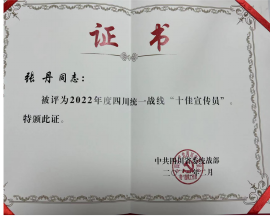 证书
张丹同志：
被评为2022年度四川统一战线“十佳宣传员”，
特颁此证。
中共四川省委统战部